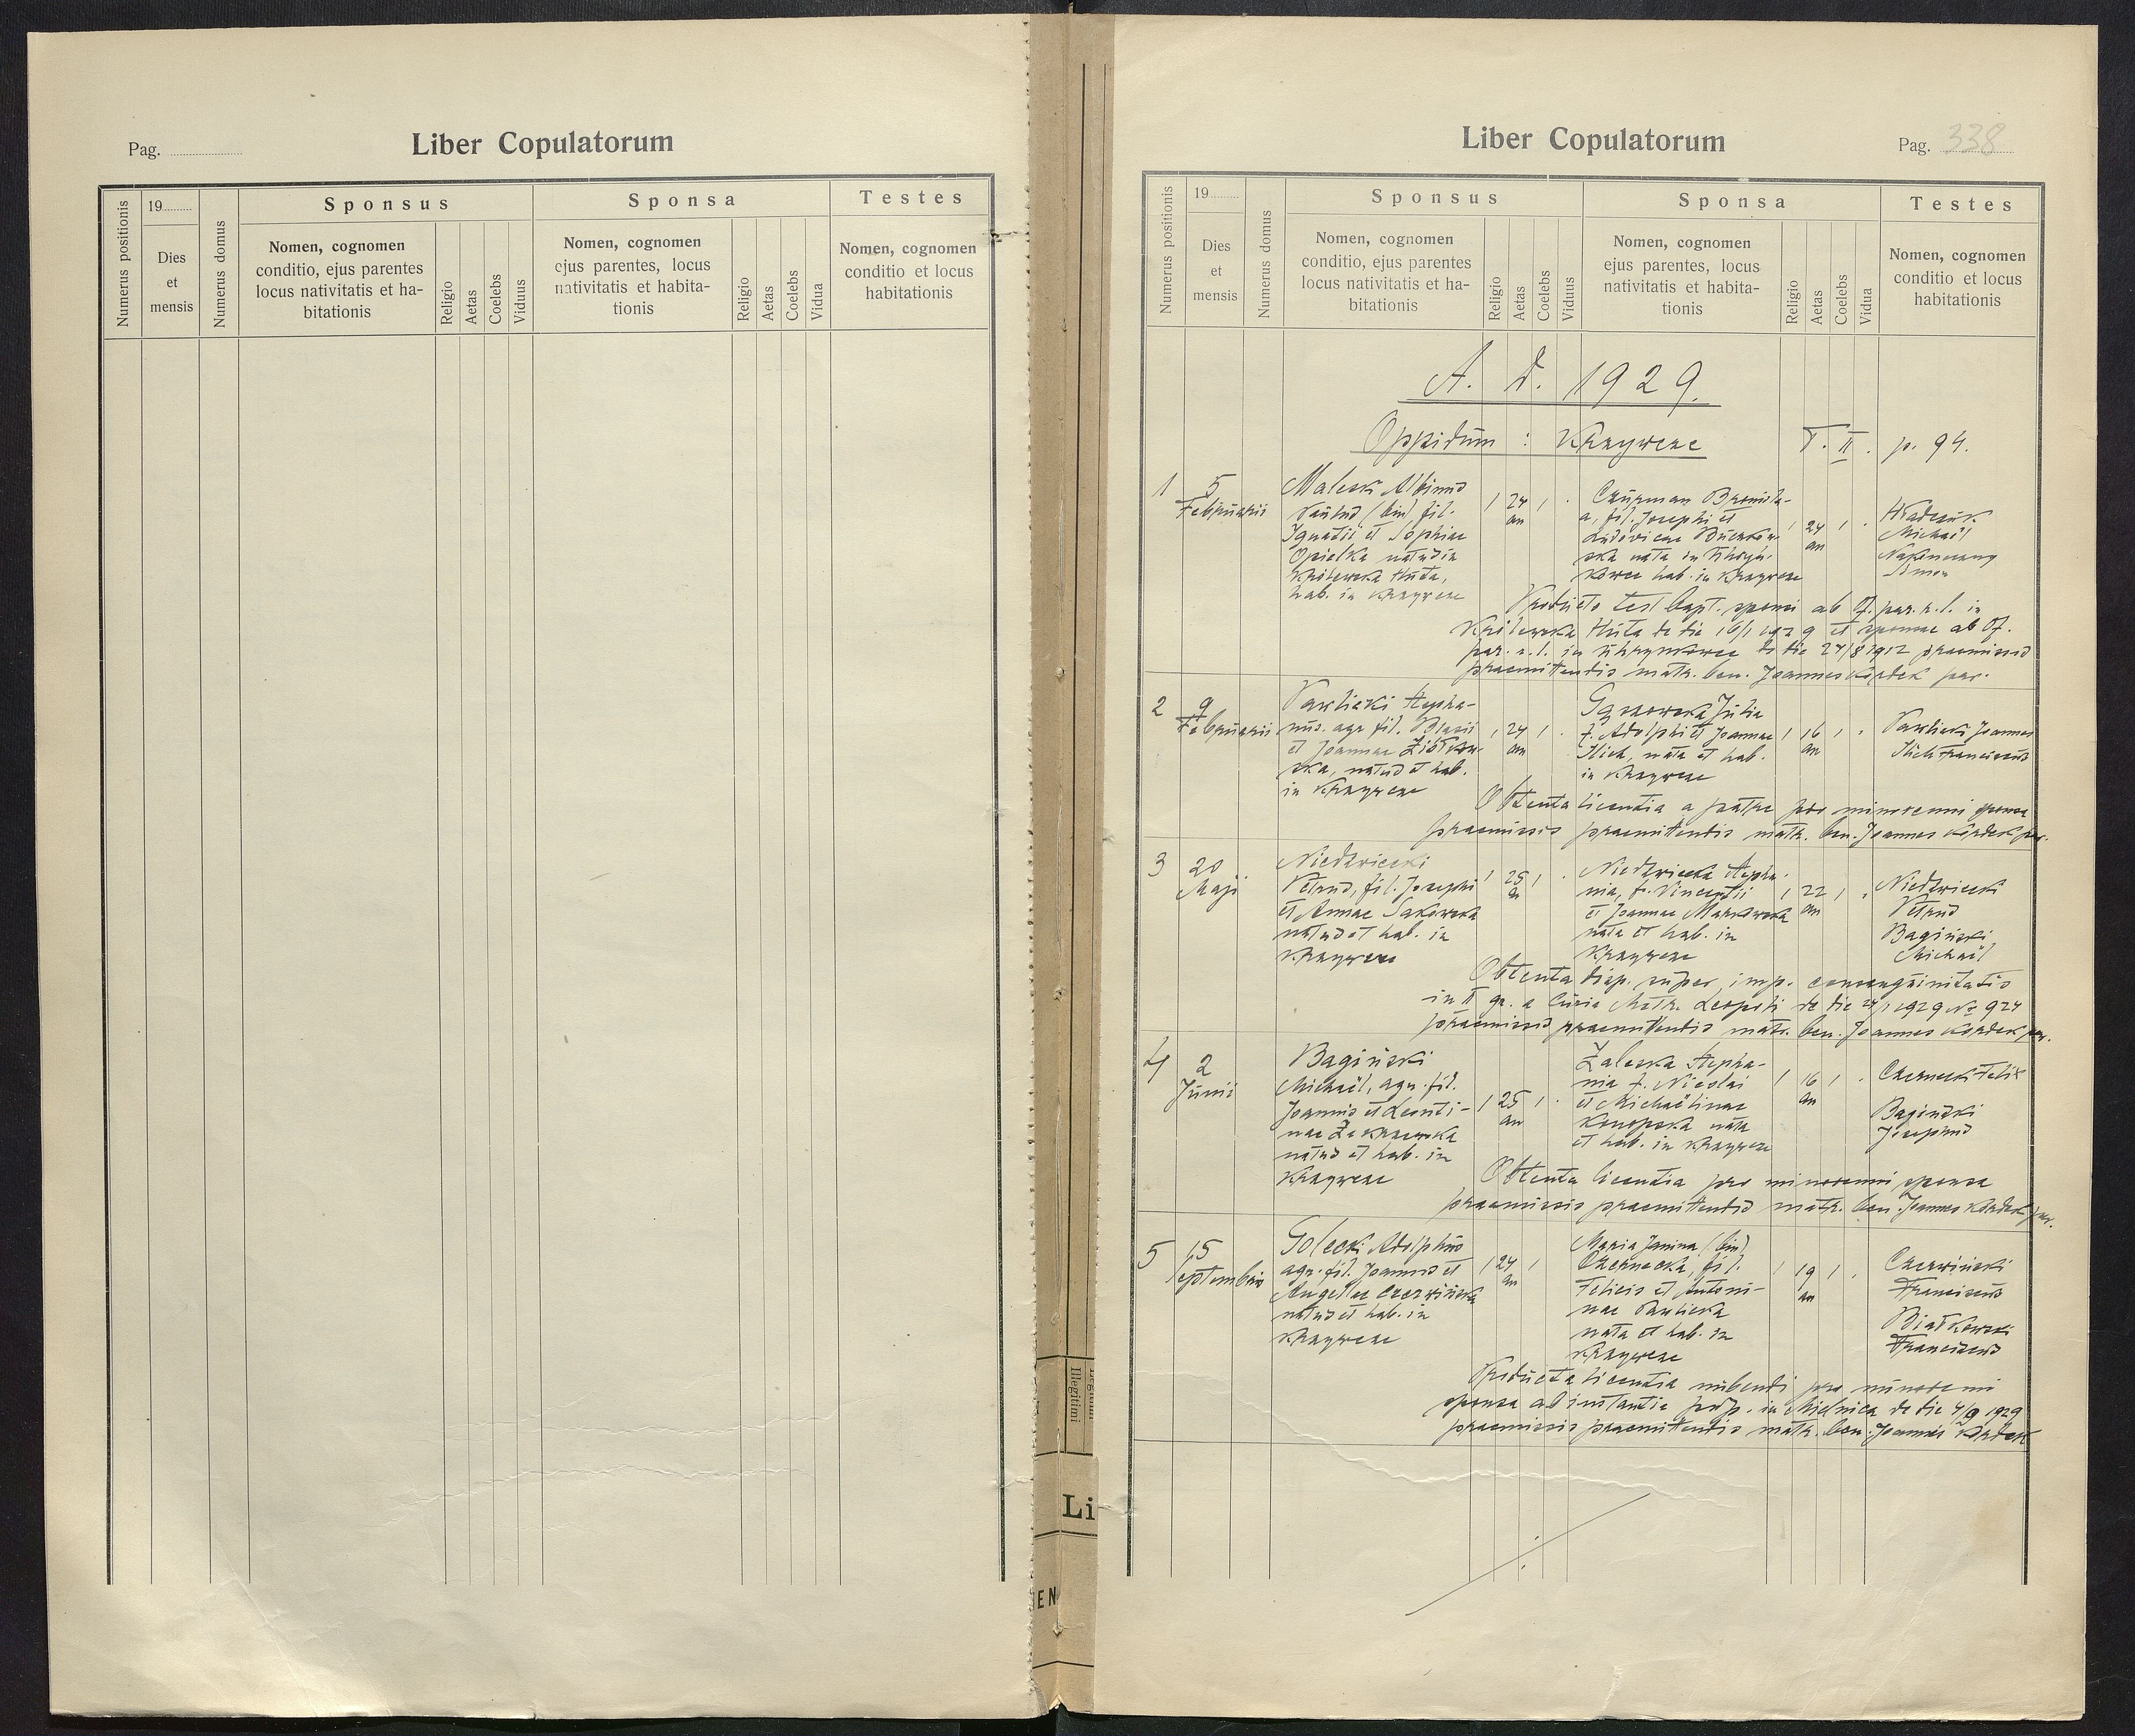 Pag.
Liber Copulatorum
Numerus positionis
19
Dies
et
mensis
Numerus domus
Sponsus
Nomen, cognomen
conditio, ejus parentes
locus nativitatis et ha-
bitationis
Religio
Aetas
Coelebs
Viduus
Sponsa
Nomen, cognomen
ejus parentes, locus
nativitatis et habita-
tionis
Religio
Aetas
Coelebs
Vidua
Testes
Nomen, cognomen
conditio et locus
habitationis
Legitimi
Illegitimi
Li
EN
Liber Copulatorum
Pag. 338
Numerus positionis
19
Dies
et
mensis
Numerus domus
Sponsus
Nomen, cognomen
conditio, ejus parentes
locus nativitatis et ha-
bitationis
Religio
Aetas
Coelebs
Viduus
Sponsa
Nomen, cognomen
ejus parentes, locus
nativitatis et habita-
tionis
Religio
Aetas
Coelebs
Vidua
Testes
Nomen, cognomen
conditio et locus
habitationis
A. D. 1929.
Oppidum : Krzywcze T. II. p. 94.
1
5
Februarii
Maleski Albinus
Paulus (bin) fil.
Ignatii et Sophiae
Opielka natus in
Królewska Huta,
hab. in Krzywcze
24
an
Czurman Bronisla-
a, fil. Josephi et
Ludovicae
ska nata in
kowce hab. in Krzywcze
24
an
Michaël
Simon
Producto test bapt. sponsi ab Of. par. r. l. in
Królewska Huta de die 16/1 1929 et sponsae ab Of.
par. r. l. in de die 24/8 1912 praemissis
praemittendis matr. ben. Joannes Kordek par.
2
9
Februarii
Pawlicki Stepha-
nus. agr. fil. Blasii
et Joannae Ziółkow-
ska, natus et hab.
in Krzywcze
24
an
Julia
f. Adolphi et Joannae
Ilich, nata et hab.
in Krzywcze
16
an
Pawlicki Joannes
Ilich Franciscus
Obtenta licentia a patre pro minorenni sponsa
praemissis praemittendis matr. ben. Joannes Kordek par.
3
20
Maji
Niedzwiecki
Petrus, fil. Josephi
et Annae Sakowska
natus et hab. in
Krzywcze
25
an
Niedzwiecka Stepha-
nia, f. Vincentii
et Joannae Markowska
nata et hab. in
Krzywcze
22
an
Niedzwiecki
Petrus
Bagiński
Michaël
Obtenta disp. super imp. consanguinitatis
in II gr. a Curia Metr. Leopoli de die 24/1 1929 № 924
praemissis praemittendis matr. ben. Joannes Kordek par.
4
2
Junii
Bagiński
Michaël, agr. fil.
Joannis et Leonti-
nae Zakrzewska
natus et hab. in
Krzywcze
25
an
Zaleska Stepha-
nia f. Nicolai
et Michaëlinae
Konopska nata
et hab. in Krzywcze
16
an
Czernecki Felix
Bagiński
Josephus
Obtenta licentia pro minorenni sponsa
praemissis praemittendis matr. ben. Joannes Kordek par.
5
15
Septembris
Golecki Adolphus
agr. fil. Joannis et
Angelae Czerwińska
natus et hab. in
Krzywcze
24
an
Maria Janina (bin)
Czernecka, fil.
Felicis et Antoni-
nae Pawlicka
nata et hab. in
Krzywcze
19
an
Czerwiński
Franciscus
Białkowski
Franciscus
Producta licentia nubendi pro minorenni
sponsa ab instantia pup. in Mielnica de die 4/9 1929
praemissis praemittendis matr. ben. Joannes Kordek